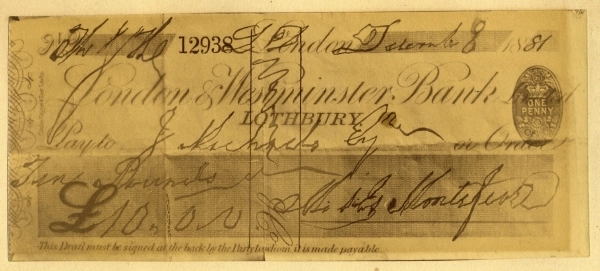 12938 London December 8 1881
London & Westminster Bank
ONE PENNY
LOTHBURY
Pay to J Esq or Order
Ten Pounds
£10.0.0 Montefiore
This Draft must be signed at the back by the Party to whom it is made payable.